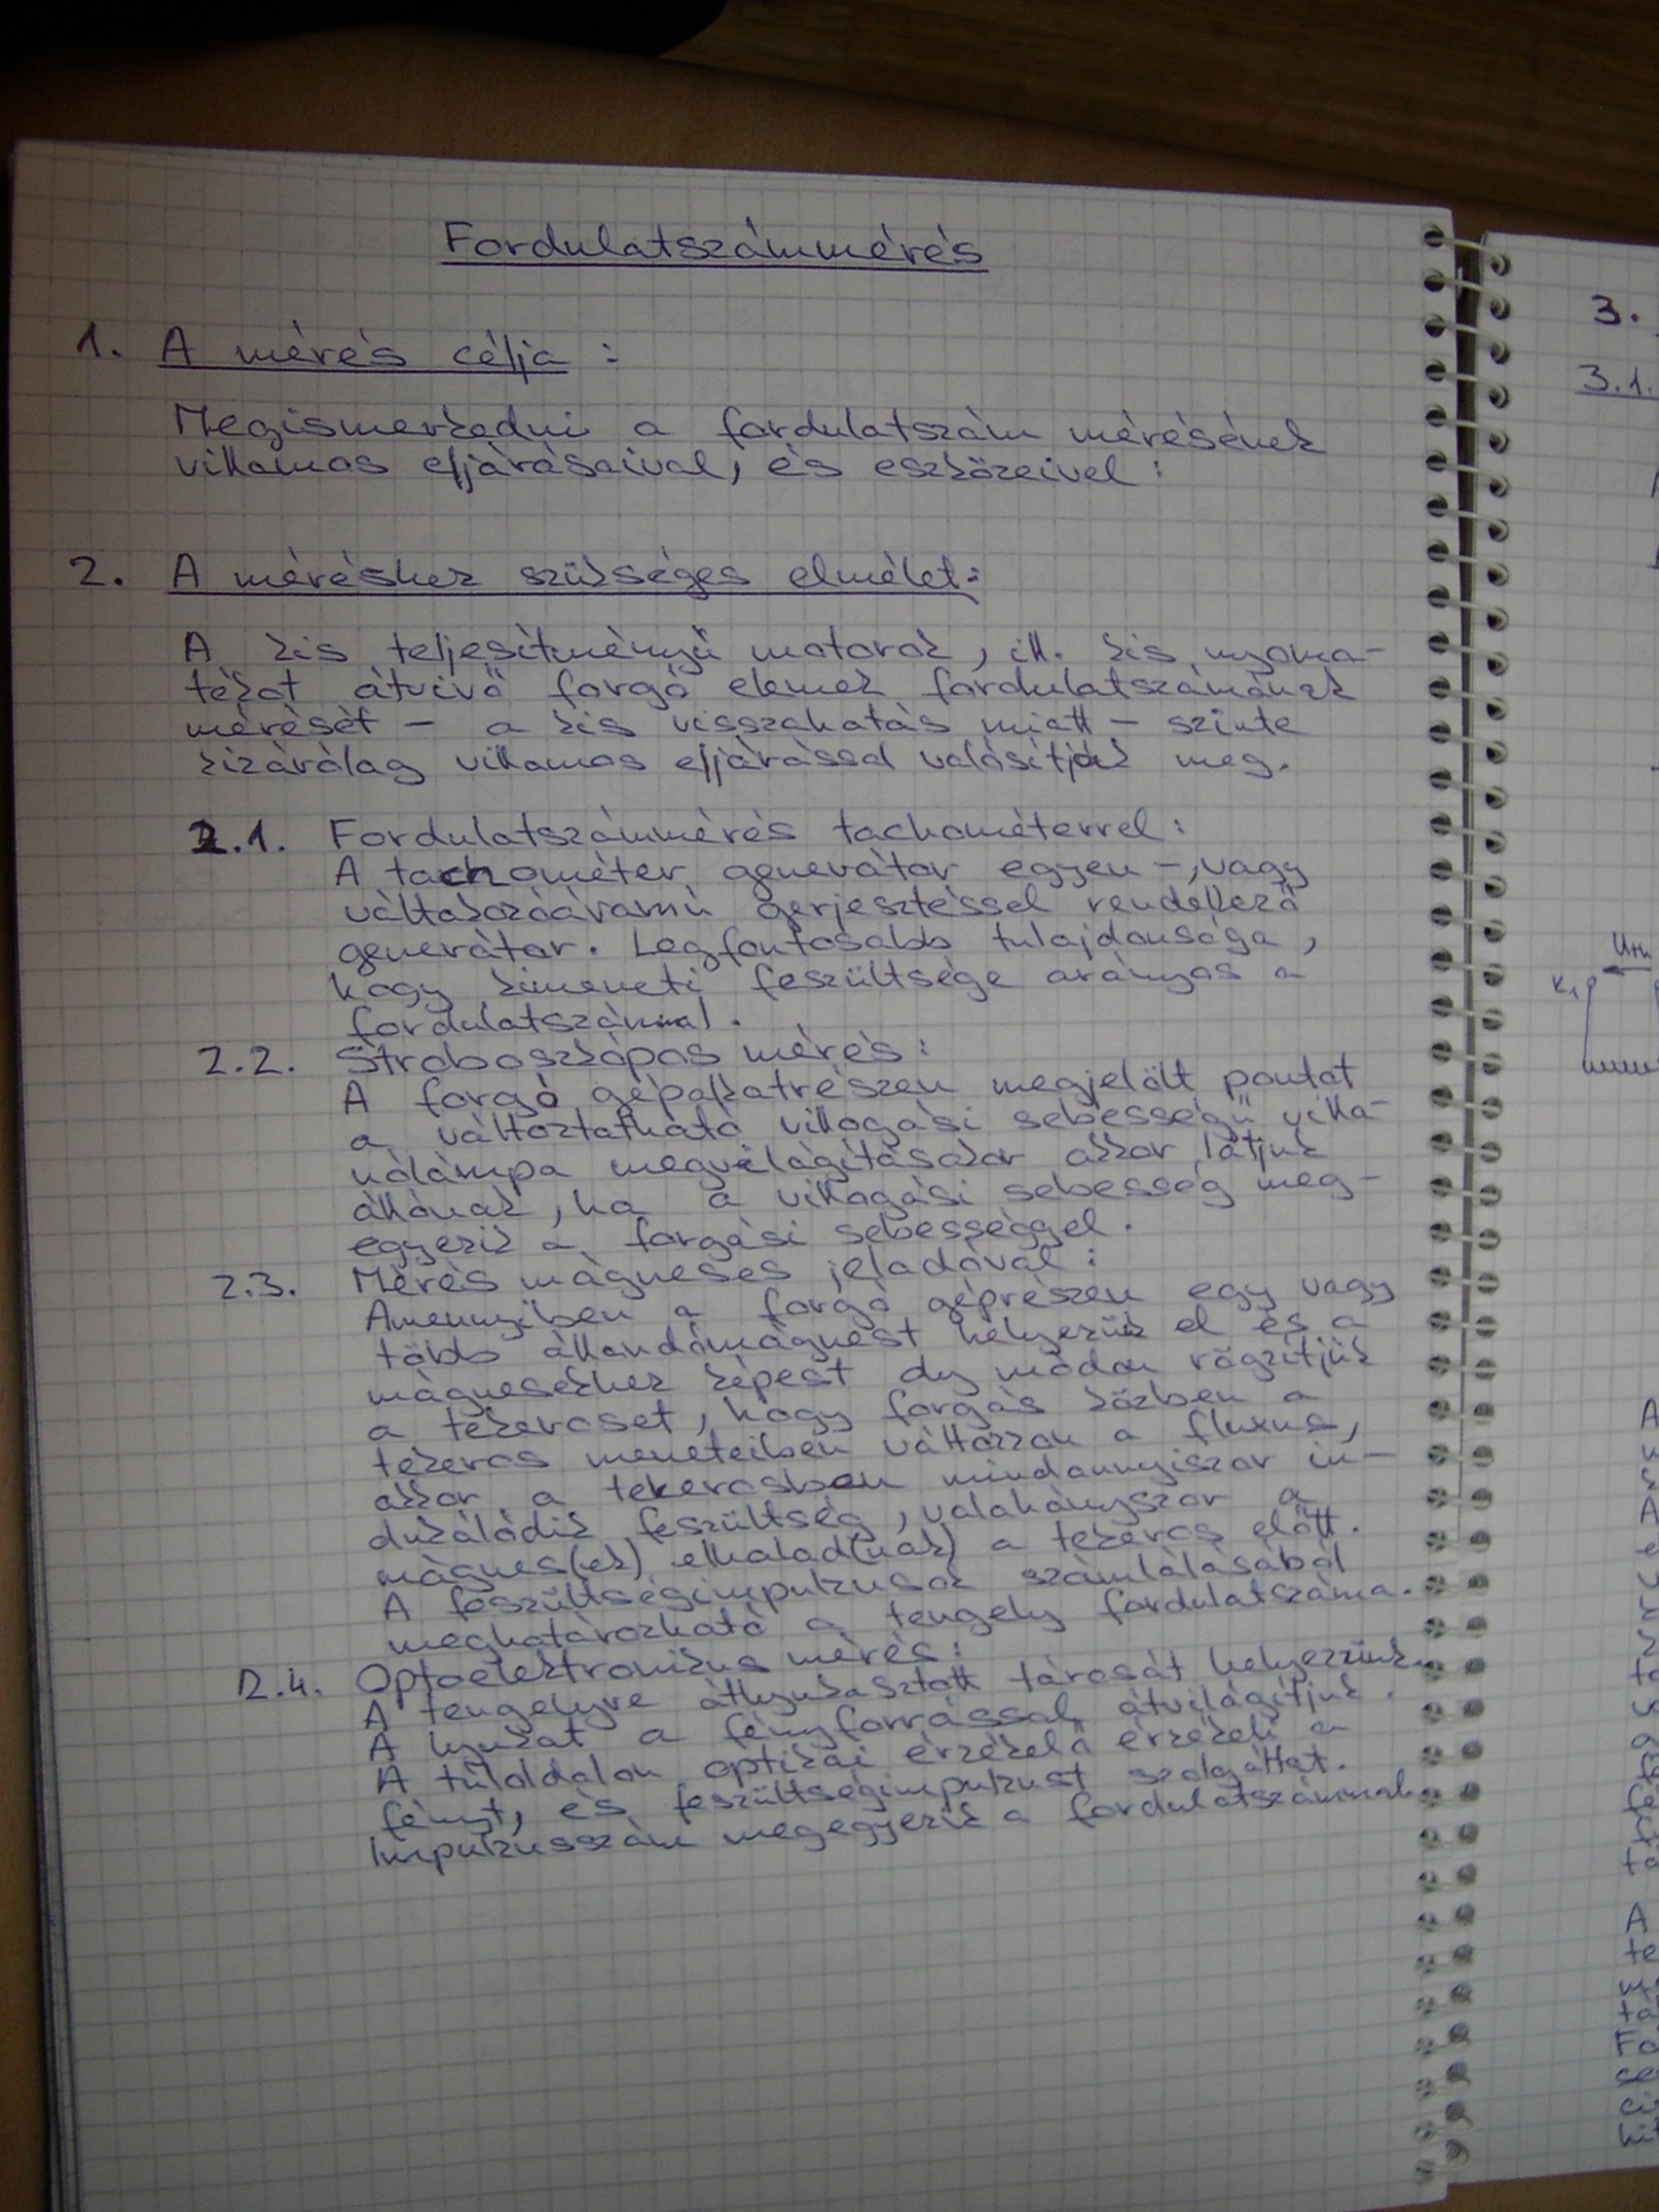 Fordulatszámmérés
1. A mérés célja :
Megismerkedni a fordulatszám mérésének
villamos eljárásaival, és eszközeivel :
2. A méréshez szükséges elmélet:
A kis teljesítményű motorok, ill. kis nyoma-
tékot átvivő forgó elemek fordulatszámának
mérését - a kis visszahatás miatt - szinte
kizárólag villamos eljárással valósítják meg.
2.1. Fordulatszámmérés tachométerrel:
A tachométer generátor egyen-, vagy
váltakozóáramú gerjesztéssel rendelkező
generátor. Legfontosabb tulajdonsága,
hogy kimeneti feszültsége arányos a
fordulatszámmal.
2.2. Stroboszkópos mérés:
A forgó gépalkatrészen megjelölt pontot
a változtatható villogási sebességű villa-
nólámpa megvilágításakor akkor látjuk
állónak, ha a villogási sebesség meg-
egyezik a forgási sebességgel.
2.3. Mérés mágneses jeladóval:
Amennyiben a forgó géprészen egy vagy
több állandómágnest helyezük el és a
mágnesekhez képest oly módon rögzítjük
a tekercset, hogy forgás közben a
tekercs meneteiben változzon a fluxus,
akkor a tekercsben mindannyiszor in-
dukálódik feszültség, valahányszor a
mágnes(ek) elhalad(nak) a tekercs előtt.
A feszültségimpulzusok számlálásából
meghatározható a tengely fordulatszáma.
2.4. Optoelektronikus mérés:
A tengelyre átlyukasztott tárcsát helyezzünk.
A lyukat a fényforrással átvilágítjuk.
A túloldalon optikai érzékelő érzékeli a
fényt, és feszültségimpulzust szolgáltat.
Impulzusszám megegyezik a fordulatszámmal.
3.
3.1.
K₁